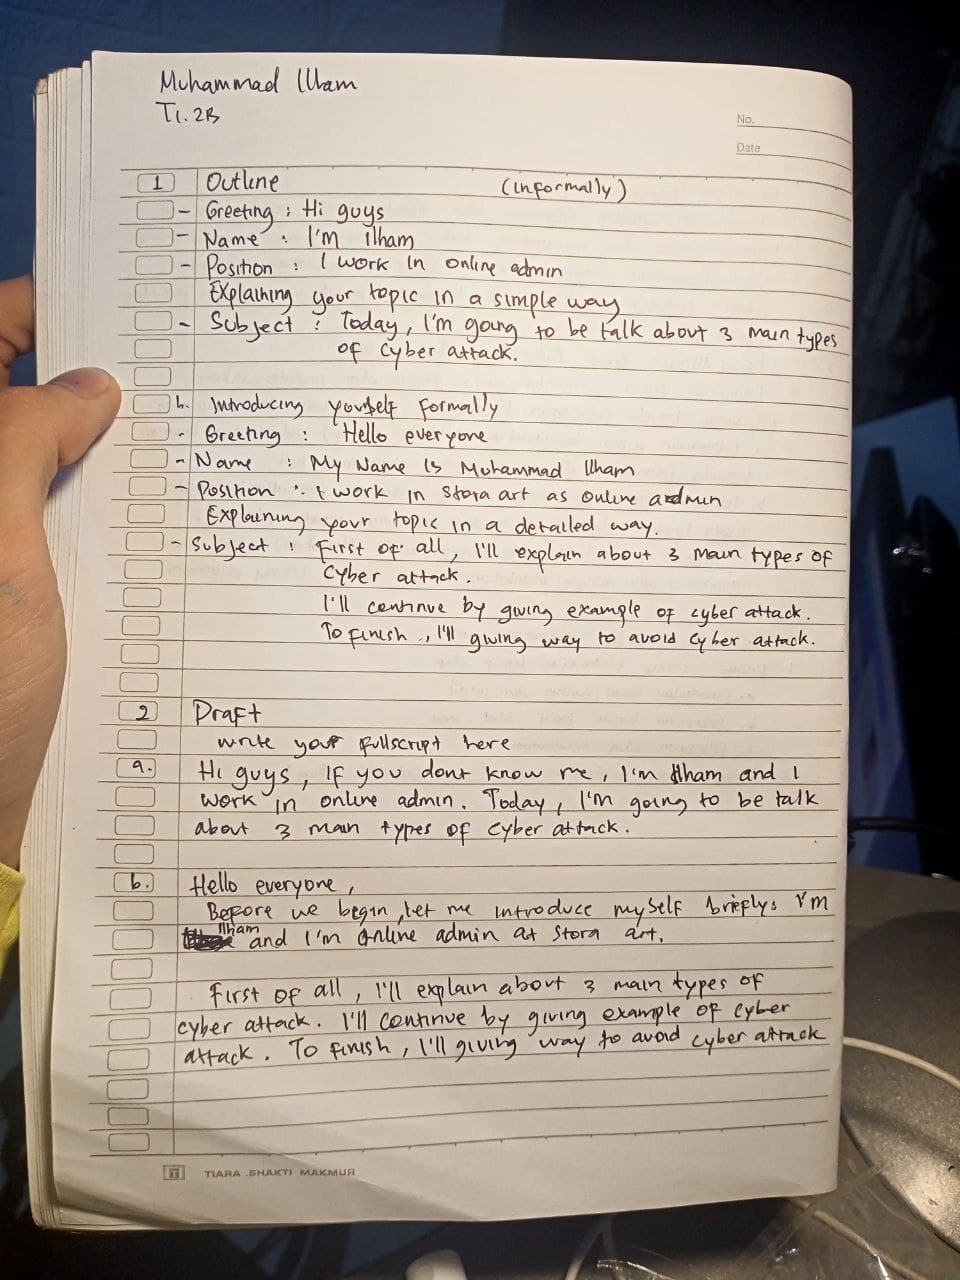 Muhammad Ilham
TI. 2B
No.
Date
1 Outline (informally)
- Greeting : Hi guys
- Name : I'm ilham
- Position : I work in online admin
Explaining your topic in a simple way
- Subject : Today, I'm going to be talk about 3 main types
of cyber attack.
b. Introducing yourself formally
- Greeting : Hello everyone
- Name : My Name is Muhammad Ilham
- Position : I work in stora art as online admin
Explaining your topic in a detailed way.
- Subject : First of all, I'll explain about 3 main types of
cyber attack.
I'll continue by giving example of cyber attack.
To finish, I'll giving way to avoid cyber attack.
2 Draft
write your fullscript here
a. Hi guys, If you dont know me, I'm Ilham and I
work in online admin. Today, I'm going to be talk
about 3 main types of cyber attack.
b. Hello everyone,
Before we begin, let me introduce myself briefly; I'm
Ilham and I'm online admin at stora art.
First of all, I'll explain about 3 main types of
cyber attack. I'll continue by giving example of cyber
attack. To finish, I'll giving way to avoid cyber attack
TIARA SHAKTI MAKMUR